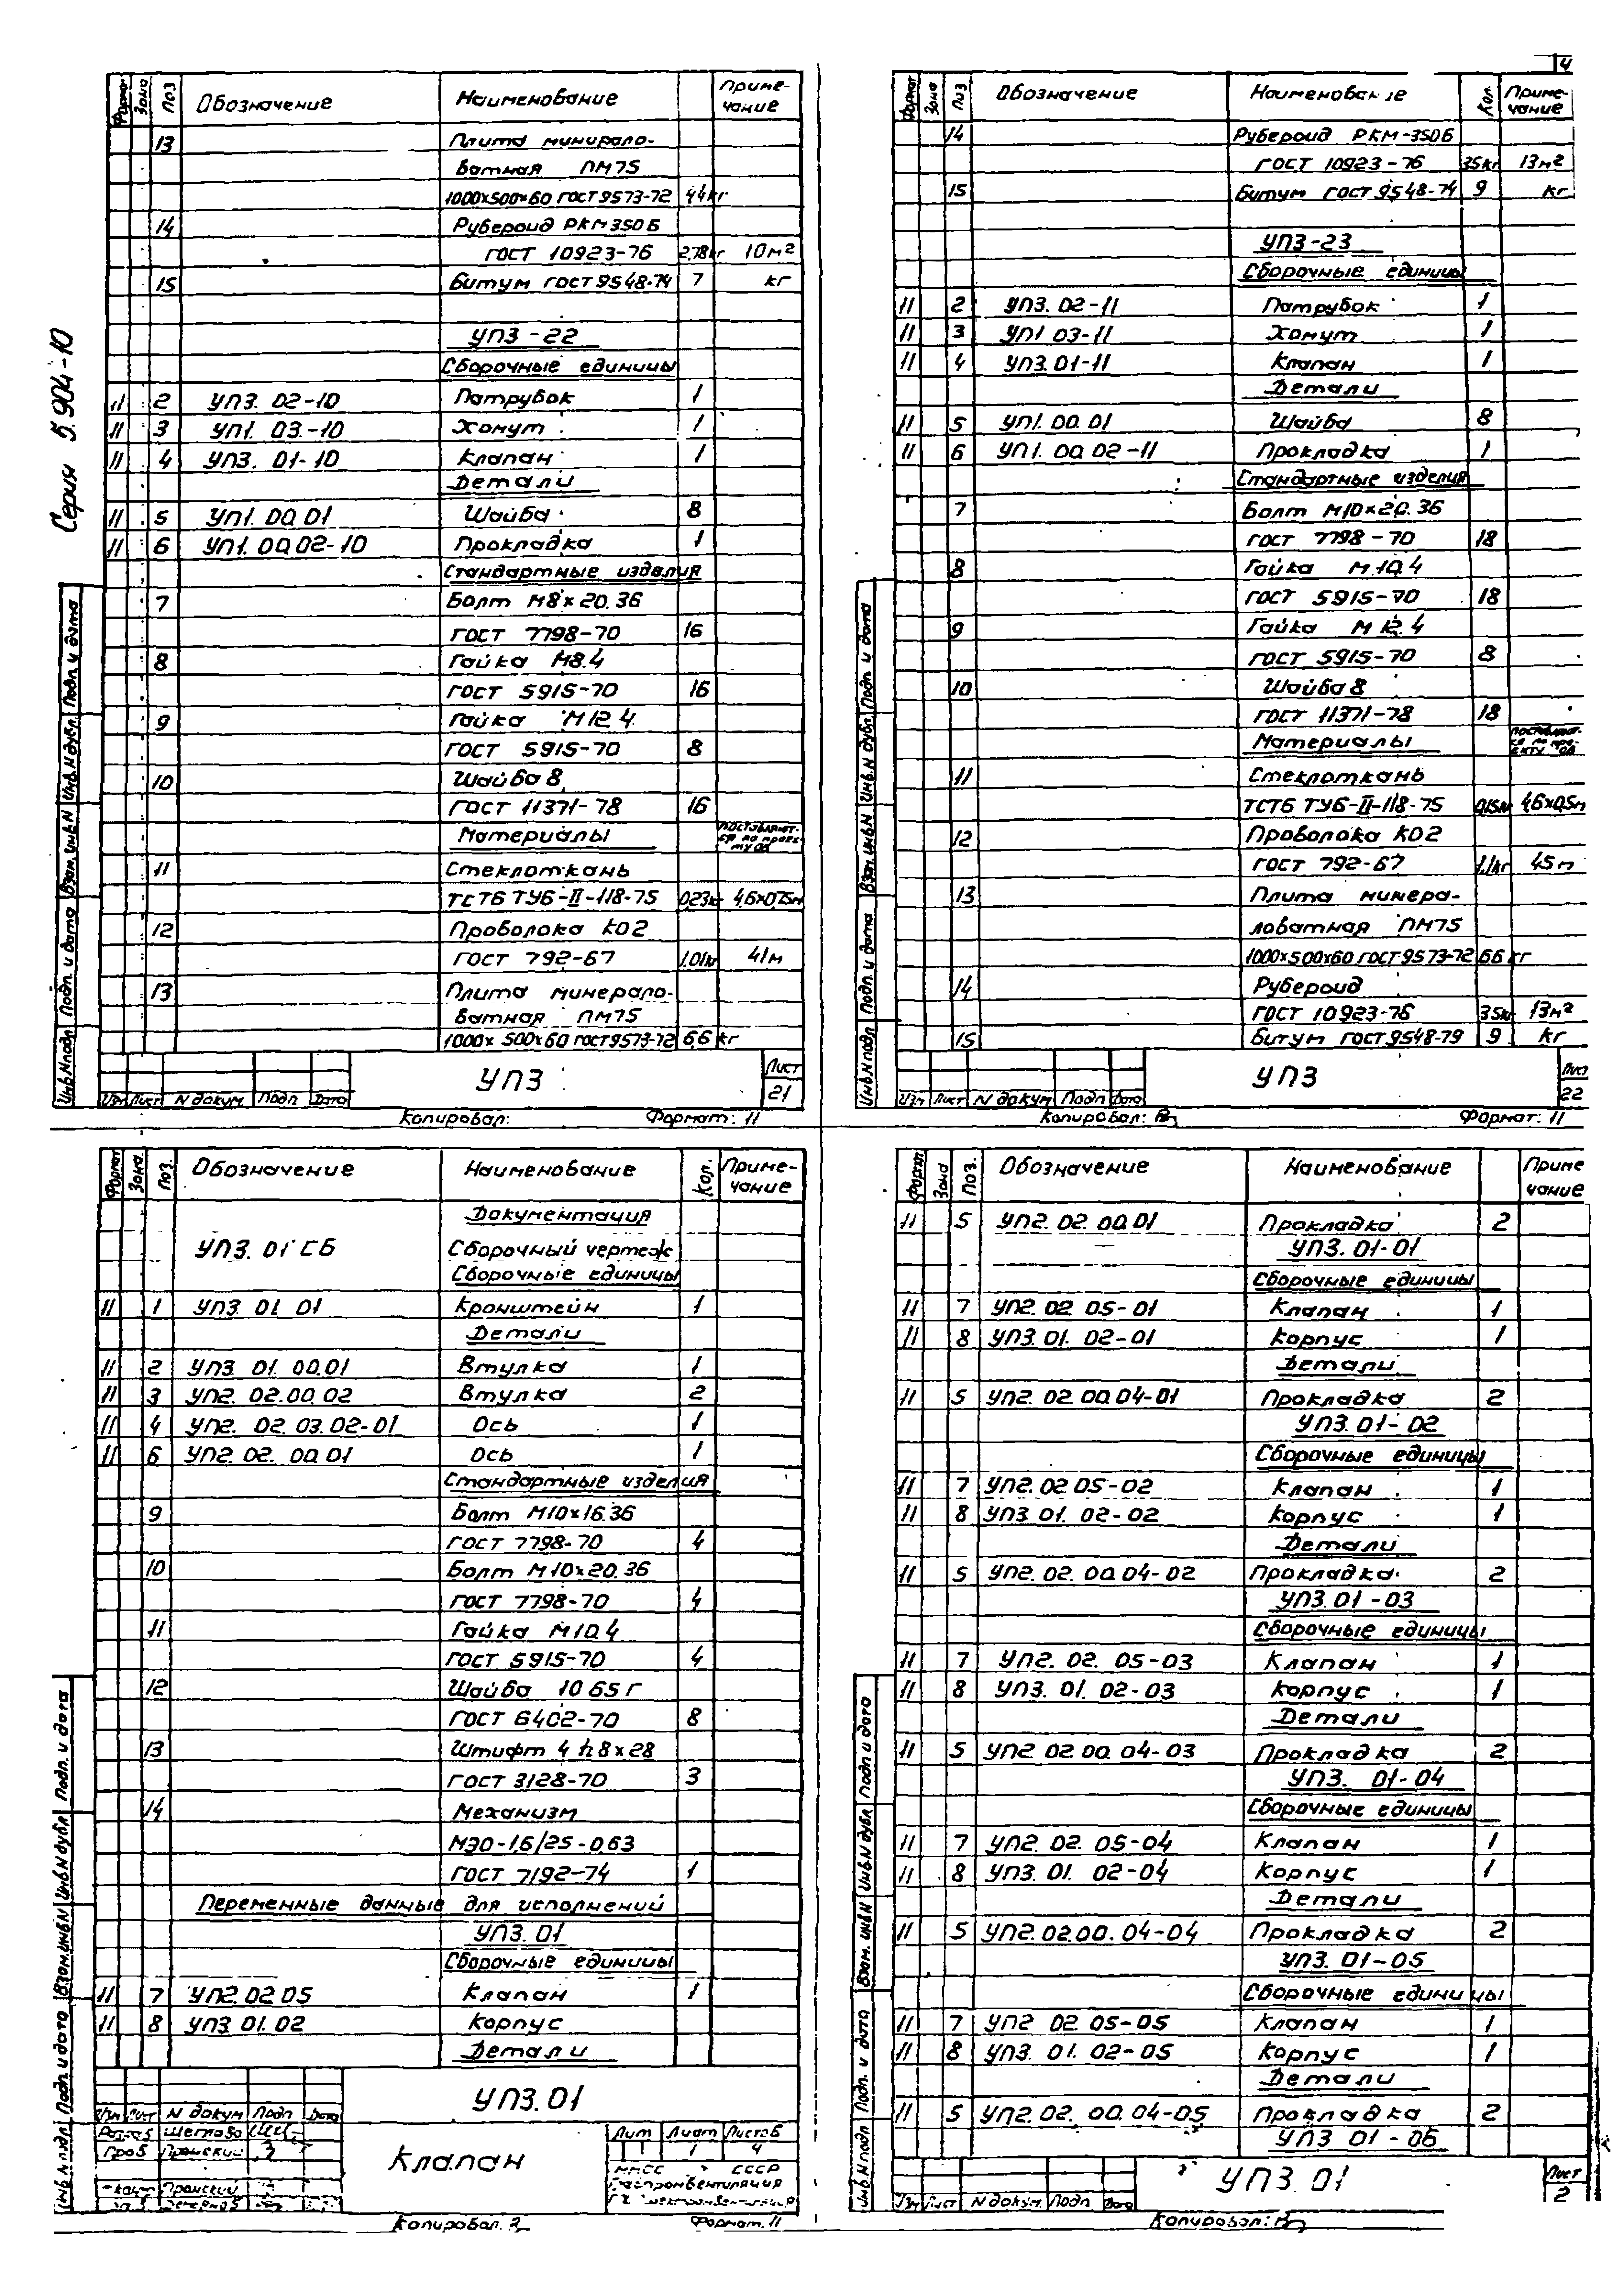 4
Серия 5.904-10
Формат Зона Поз Обозначение Наименование Приме-чание
13 Плита минерало-
ватная ПМ75
1000х500х60 ГОСТ 9573-72 44 кг
14 Рубероид РКМ350Б
ГОСТ 10923-76 2,78кг 10м²
15 Битум ГОСТ 9548-74 7 кг
УПЗ-22
Сборочные единицы
11 2 УПЗ. 02-10 Патрубок 1
11 3 УП1. 03-10 Хомут 1
11 4 УПЗ. 01-10 Клапан 1
Детали
11 5 УП1. 00.01 Шайба 8
11 6 УП1. 00.02-10 Прокладка 1
Стандартные изделия
7 Болт М8х20.36
ГОСТ 7798-70 16
8 Гайка М8.4
ГОСТ 5915-70 16
9 Гайка М12.4
ГОСТ 5915-70 8
10 Шайба 8
ГОСТ 11371-78 16
Материалы
11 Стеклоткань
ТСТ6 ТУ6-II-118-75 0,23кг 4,6х0,75м
12 Проволока КО2
ГОСТ 792-67 1.01кг 41м
13 Плита минерало-
ватная ПМ75
1000х500х60 ГОСТ 9573-72 66 кг
14
УПЗ Лист 21
Изм Лист N докум. Подп Дата
Инв.N подл Подп. и дата Взам.инв.N Инв.N дубл. Подп. и дата
Копировал: Формат: 11
Формат Зона Поз Обозначение Наименование Кол. Приме-чание
14 Рубероид РКМ-350Б
ГОСТ 10923-76 35кг 13м²
15 Битум ГОСТ 9548-74 9 кг
УПЗ-23
Сборочные единицы
11 2 УПЗ. 02-11 Патрубок 1
11 3 УП1 03-11 Хомут 1
11 4 УПЗ.01-11 Клапан 1
Детали
11 5 УП1. 00.01 Шайба 8
11 6 УП1. 00.02-11 Прокладка 1
Стандартные изделия
7 Болт М10х20.36
ГОСТ 7798-70 18
8 Гайка М10.4
ГОСТ 5915-70 18
9 Гайка М12.4
ГОСТ 5915-70 8
10 Шайба 8
ГОСТ 11371-78 18
Материалы
11 Стеклоткань
ТСТ6 ТУ6-II-118-75 0,15кг 4,6х0,5м
12 Проволока КО2
ГОСТ 792-67 1.1кг 45м
13 Плита минера-
ловатная ПМ75
1000х500х60 ГОСТ 9573-72 66 кг
14 Рубероид
ГОСТ 10923-76 35кг 13м²
15 Битум ГОСТ 9548-79 9 кг
УПЗ Лист 22
Изм Лист N докум. Подп Дата
Инв.N подл Подп. и дата Взам.инв.N Инв.N дубл. Подп. и дата
Копировал: Формат: 11
Формат Зона. Поз. Обозначение Наименование Кол. Приме-чание
Документация
УПЗ. 01 СБ Сборочный чертеж
Сборочные единицы
11 1 УПЗ. 01. 01 Кронштейн 1
Детали
11 2 УПЗ 01. 00.01 Втулка 1
11 3 УП2. 02.00.02 Втулка 2
11 4 УП2. 02. 03.02-01 Ось 1
11 6 УП2. 02. 00.01 Ось 1
Стандартные изделия
9 Болт М10х16.36
ГОСТ 7798-70 4
10 Болт М10х20.36
ГОСТ 7798-70 4
11 Гайка М10.4
ГОСТ 5915-70 4
12 Шайба 10 65Г
ГОСТ 6402-70 8
13 Штифт 4h8х28
ГОСТ 3128-70 3
14 Механизм
МЭО-1,6/25-0,63
ГОСТ 7192-74 1
Переменные данные для исполнений
УПЗ.01
Сборочные единицы
11 7 УП2.02.05 Клапан 1
11 8 УПЗ 01. 02 Корпус
Детали
УПЗ.01
Изм Лист N докум Подп Дата
Разраб Щеглова
Пров Пронский
Пронский
Клапан
Лит Лист Листов
1 4
ММСС СССР
Инв N подл Подп. и дата Взам.инв.N Инв.N дубл Подп. и дата
Копировал. Формат. 11
Формат Зона Поз. Обозначение Наименование Приме чание
11 5 УП2. 02. 00.01 Прокладка 2
УПЗ. 01-01
Сборочные единицы
11 7 УП2. 02. 05-01 Клапан 1
11 8 УПЗ. 01. 02-01 Корпус 1
Детали
11 5 УП2. 02.00.04-01 Прокладка 2
УПЗ.01-02
Сборочные единицы
11 7 УП2.02.05-02 Клапан 1
11 8 УПЗ 01. 02-02 Корпус 1
Детали
11 5 УП2. 02. 00.04-02 Прокладка 2
УПЗ.01-03
Сборочные единицы
11 7 УП2. 02. 05-03 Клапан 1
11 8 УПЗ. 01. 02-03 Корпус 1
Детали
11 5 УП2 02.00.04-03 Прокладка 2
УПЗ. 01-04
Сборочные единицы
11 7 УП2. 02. 05-04 Клапан 1
11 8 УПЗ. 01. 02-04 Корпус 1
Детали
11 5 УП2.02.00.04-04 Прокладка 2
УПЗ. 01-05
Сборочные единицы
11 7 УП2 02.05-05 Клапан 1
11 8 УПЗ. 01. 02-05 Корпус 1
Детали
11 5 УП2. 02. 00.04-05 Прокладка 2
УПЗ 01-06
УПЗ.01 Лист 2
Изм Лист N докум. Подп Дата
Инв N подл Подп. и дата Взам. инв.N Инв.N дубл Подп. и дата
Копировал: